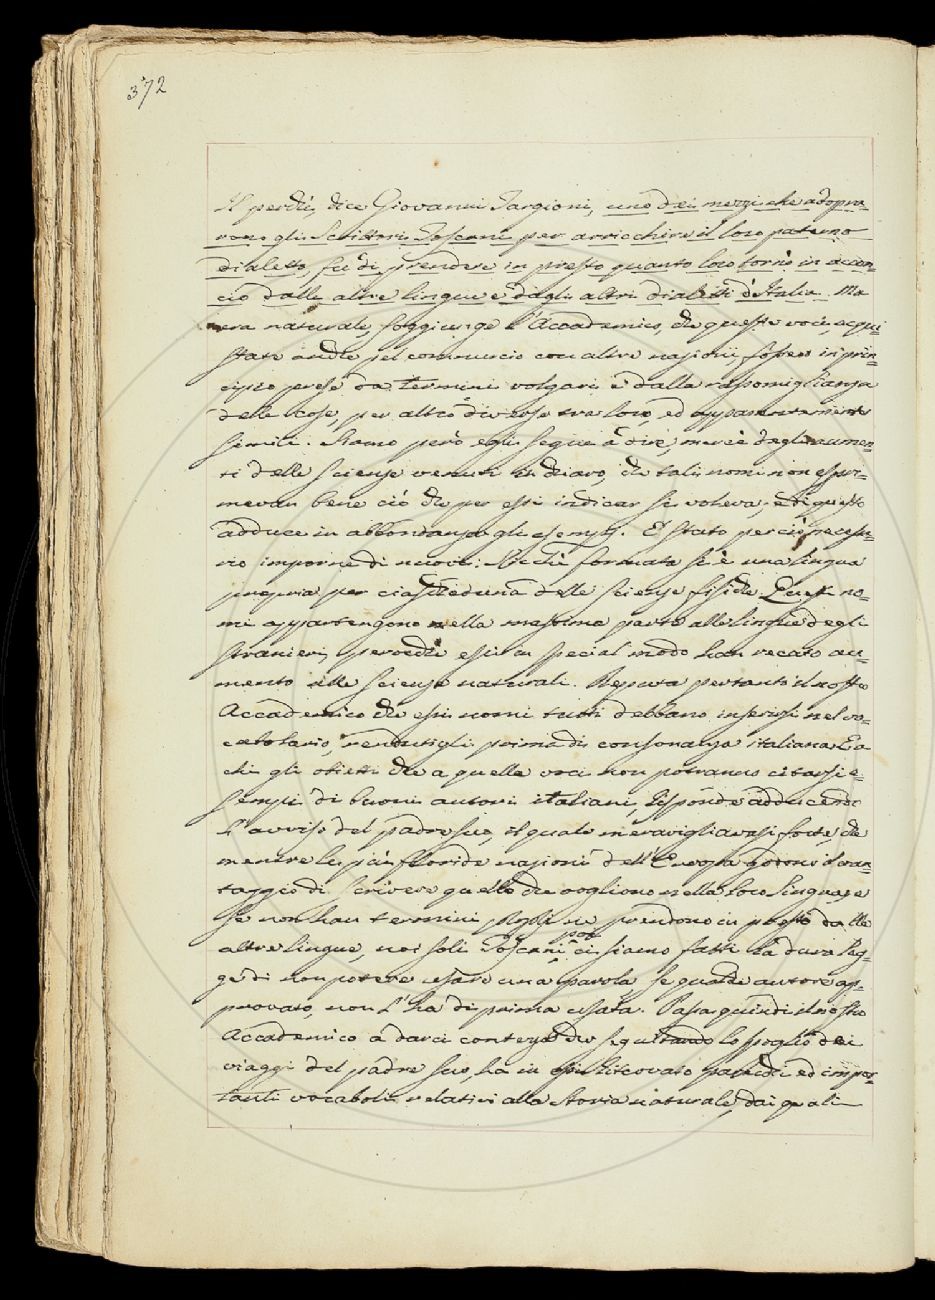 372
Il perchè, dice Giovanni Targioni, uno dei mezzi che adopra-
rono gli Scrittori Toscani per arricchire il loro paterno
dialetto, fu di prendere in presto quanto loro tornò in accon-
cio dalle altre lingue e dagli altri dialetti d'Italia. Ma
era naturale, soggiunge l'Accademico, che queste voci, acqui-
state anche pel commercio con altre nazioni, fossero in prin-
cipio prese da termini volgari e dalla rassomiglianza
delle cose, per altro diverse tra loro, ed apparentemente
simili. Siamo però egli segue a dire, mercè degli aumen-
ti delle scienze venuti in chiaro, che tali nomi non espri-
mevan bene ciò che per essi indicar si voleva; e di questo
adduce in abbondanza gli esempj. È stato perciò necessa-
rio imporne di nuovi: Sicchè formata si è una lingua
propria per ciascheduna delle scienze fisiche. Questi no-
mi appartengono nella massima parte alle lingue degli
stranieri, perocchè essi in special modo han recato au-
mento alle scienze naturali. Reputa pertanto il nostro
Accademico che essi nomi tutti debbano inserirsi nel vo-
cabolario, rendutigli prima di consonanza italiana. Ea
chi gli obietti che a quelle voci non potranno citarsi e-
sempi di buoni autori italiani, risponde adducendo
l'avviso del padre suo, il quale meravigliavasi forte, che
mentre le più floride nazioni dell'Europa godono il van-
taggio di scrivere quello che vogliono nella loro lingua, e
se non han termini proprj ne prendono in presto dalle
altre lingue, noi soli Toscani ci siamo fatti la dura leg-
ge di non potere usare una parola, se qualche autore ap-
provato, non l'ha di prima usata. Passa quindi il nostro
Accademico a darci contezza che seguitando lo spoglio dei
viaggi del padre suo, ha in essi ritrovato parecchi ed impor-
tanti vocaboli relativi alla storia naturale, dai quali